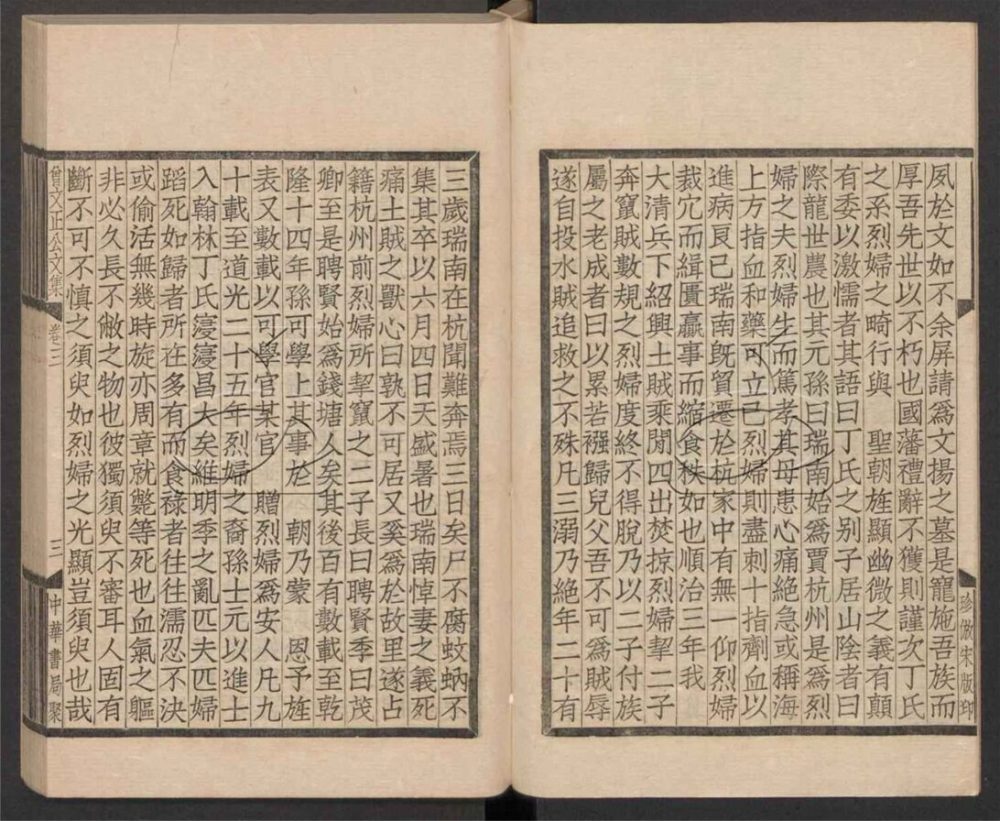 夙於文如不余屏請爲文揚之墓是寵施吾族而
厚吾先世以不朽也國藩禮辭不獲則謹次丁氏
之系烈婦之畸行與 聖朝旌顯幽微之義有顛
有委以激懦者其語曰丁氏之別子居山陰者曰
際龍世農也其元孫曰瑞南始爲賈杭州是爲烈
婦之夫烈婦生而篤孝其母患心痛絕急或稱海
上方指血和藥可立已烈婦則盡刺十指劑血以
進病良已瑞南旣貿遷於杭家中有無一仰烈婦
裁宂而緝匱羸事而縮食秩如也順治三年我
大清兵下紹興土賊乘閒四出焚掠烈婦挈二子
奔竄賊數規之烈婦度終不得脫乃以二子付族
屬之老成者曰以累若襁歸兒父吾不可爲賊辱
遂自投水賊追救之不殊凡三溺乃絕年二十有
珍倣宋版印
三歲瑞南在杭聞難奔焉三日矣尸不腐蚊蚋不
集其卒以六月四日天盛暑也瑞南悼妻之義死
痛土賊之獸心曰孰不可居又奚爲於故里遂占
籍杭州前烈婦所挈竄之二子長曰聘賢季曰茂
卿至是聘賢始爲錢塘人矣其後百有數載至乾
隆十四年孫可學上其事於 朝乃蒙 恩予旌
表又數載以可學官某官 贈烈婦爲安人凡九
十載至道光二十五年烈婦之裔孫士元以進士
入翰林丁氏寖寖昌大矣維明季之亂匹夫匹婦
蹈死如歸者所在多有而食祿者往往濡忍不決
或偷活無幾時旋亦周章就斃等死也血氣之軀
非必久長不敝之物也彼獨須臾不審耳人固有
斷不可不愼之須臾如烈婦之光顯豈須臾也哉
曾文正公文集 卷二 三 中華書局聚